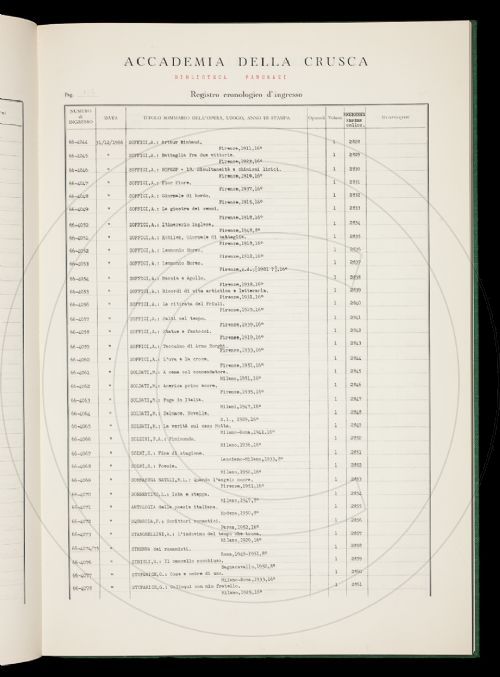 ACCADEMIA DELLA CRUSCA
BIBLIOTECA PANCRAZI
Pag.
Registro cronologico d'ingresso
NUMERO di INGRESSO DATA TITOLO SOMMARIO DELL'OPERA, LUOGO, ANNO DI STAMPA Opuscoli Volumi
66-4044 31/12/1966 SOFFICI,A.: Arthur Rimbaud. 1 2828
Firenze,1911,16°
66-4045 " SOFFICI,A.: Battaglia fra due vittorie. 1 2829
Firenze,1923,16°
66-4046 " SOFFICI,A.: BIF&ZF + 18. Simultaneità e chimismi lirici. 1 2830
Firenze,1919,16°
66-4047 " SOFFICI,A.: Fior fiore. 1 2831
Firenze,1937,16°
66-4048 " SOFFICI,A.: Giornale di bordo. 1 2832
Firenze,1915,16°
66-4049 " SOFFICI,A.: La giostra dei sensi. 1 2833
Firenze,1918,16°
66-4050 " SOFFICI,A.: Itinerario inglese. 1 2834
Firenze,1948,8°
66-4051 " SOFFICI,A.: Kobilek, Giornale di battaglia. 1 2835
Firenze,1918,16°
66-4052 " SOFFICI,A.: Lemmonio Boreo. 1 2836
Firenze,1912,16°
66-4053 " SOFFICI,A.: Lemmonio Boreo. 1 2837
Firenze,s.d.,[1921 ?],16°
66-4054 " SOFFICI,A.: Marsia e Apollo. 1 2838
Firenze,1938,16°
66-4055 " SOFFICI,A.: Ricordi di vita artistica e letteraria. 1 2839
Firenze,1931,16°
66-4056 " SOFFICI,A.: La ritirata del Friuli. 1 2840
Firenze,1919,16°
66-4057 " SOFFICI,A.: Salti nel tempo. 1 2841
Firenze,1939,16°
66-4058 " SOFFICI,A.: Statue e fantocci. 1 2842
Firenze,1919,16°
66-4059 " SOFFICI,A.: Taccuino di Arno Borghi. 1 2843
Firenze,1933,16°
66-4060 " SOFFICI,A.: L'uva e la croce. 1 2844
Firenze,1951,16°
66-4061 " SOLDATI,M.: A cena col commendatore. 1 2845
Milano,1951,16°
66-4062 " SOLDATI,M.: America primo amore. 1 2846
Firenze,1935,16°
66-4063 " SOLDATI,M.: Fuga in Italia. 1 2847
Milano,1947,16°
66-4064 " SOLDATI,M.: Salmace. Novelle. 1 2848
S.l., 1929,16°
66-4065 " SOLDATI,M.: La verità sul caso Motta. 1 2849
Milano-Roma,1941,16°
66-4066 " 1 2850
Milano,1936,16°
66-4067 " Fine di stagione. 1 2851
Lanciano-Milano,1933,8°
66-4068 " Poesie. 1 2852
Milano,1950,16°
66-4069 " 1 2853
Firenze,1951,16°
66-4070 " Isba e steppa. 1 2854
Milano,1947,8°
66-4071 " ANTOLOGIA della poesia italiana. 1 2855
Modena,1950,8°
66-4072 " Scrittori romantici. 1 2856
Parma,1952,16°
66-4073 " STANGHELLINI,A.: L'indovino del tempo che torna. 1 2857
Milano,1920,16°
66-4074/75 " STRENNA dei romanisti. 2858
Roma,1949-1951,8°
66-4076 " Il cancello socchiuso. 1 2859
Bagnacavallo,1932,8°
66-4077 " STUPARICH,G.: Cose e ombre di uno. 1
Milano-Roma,1933,16°
66-4078 " STUPARICH,G.: Colloqui con mio fratello. 1
Milano,1925,16°